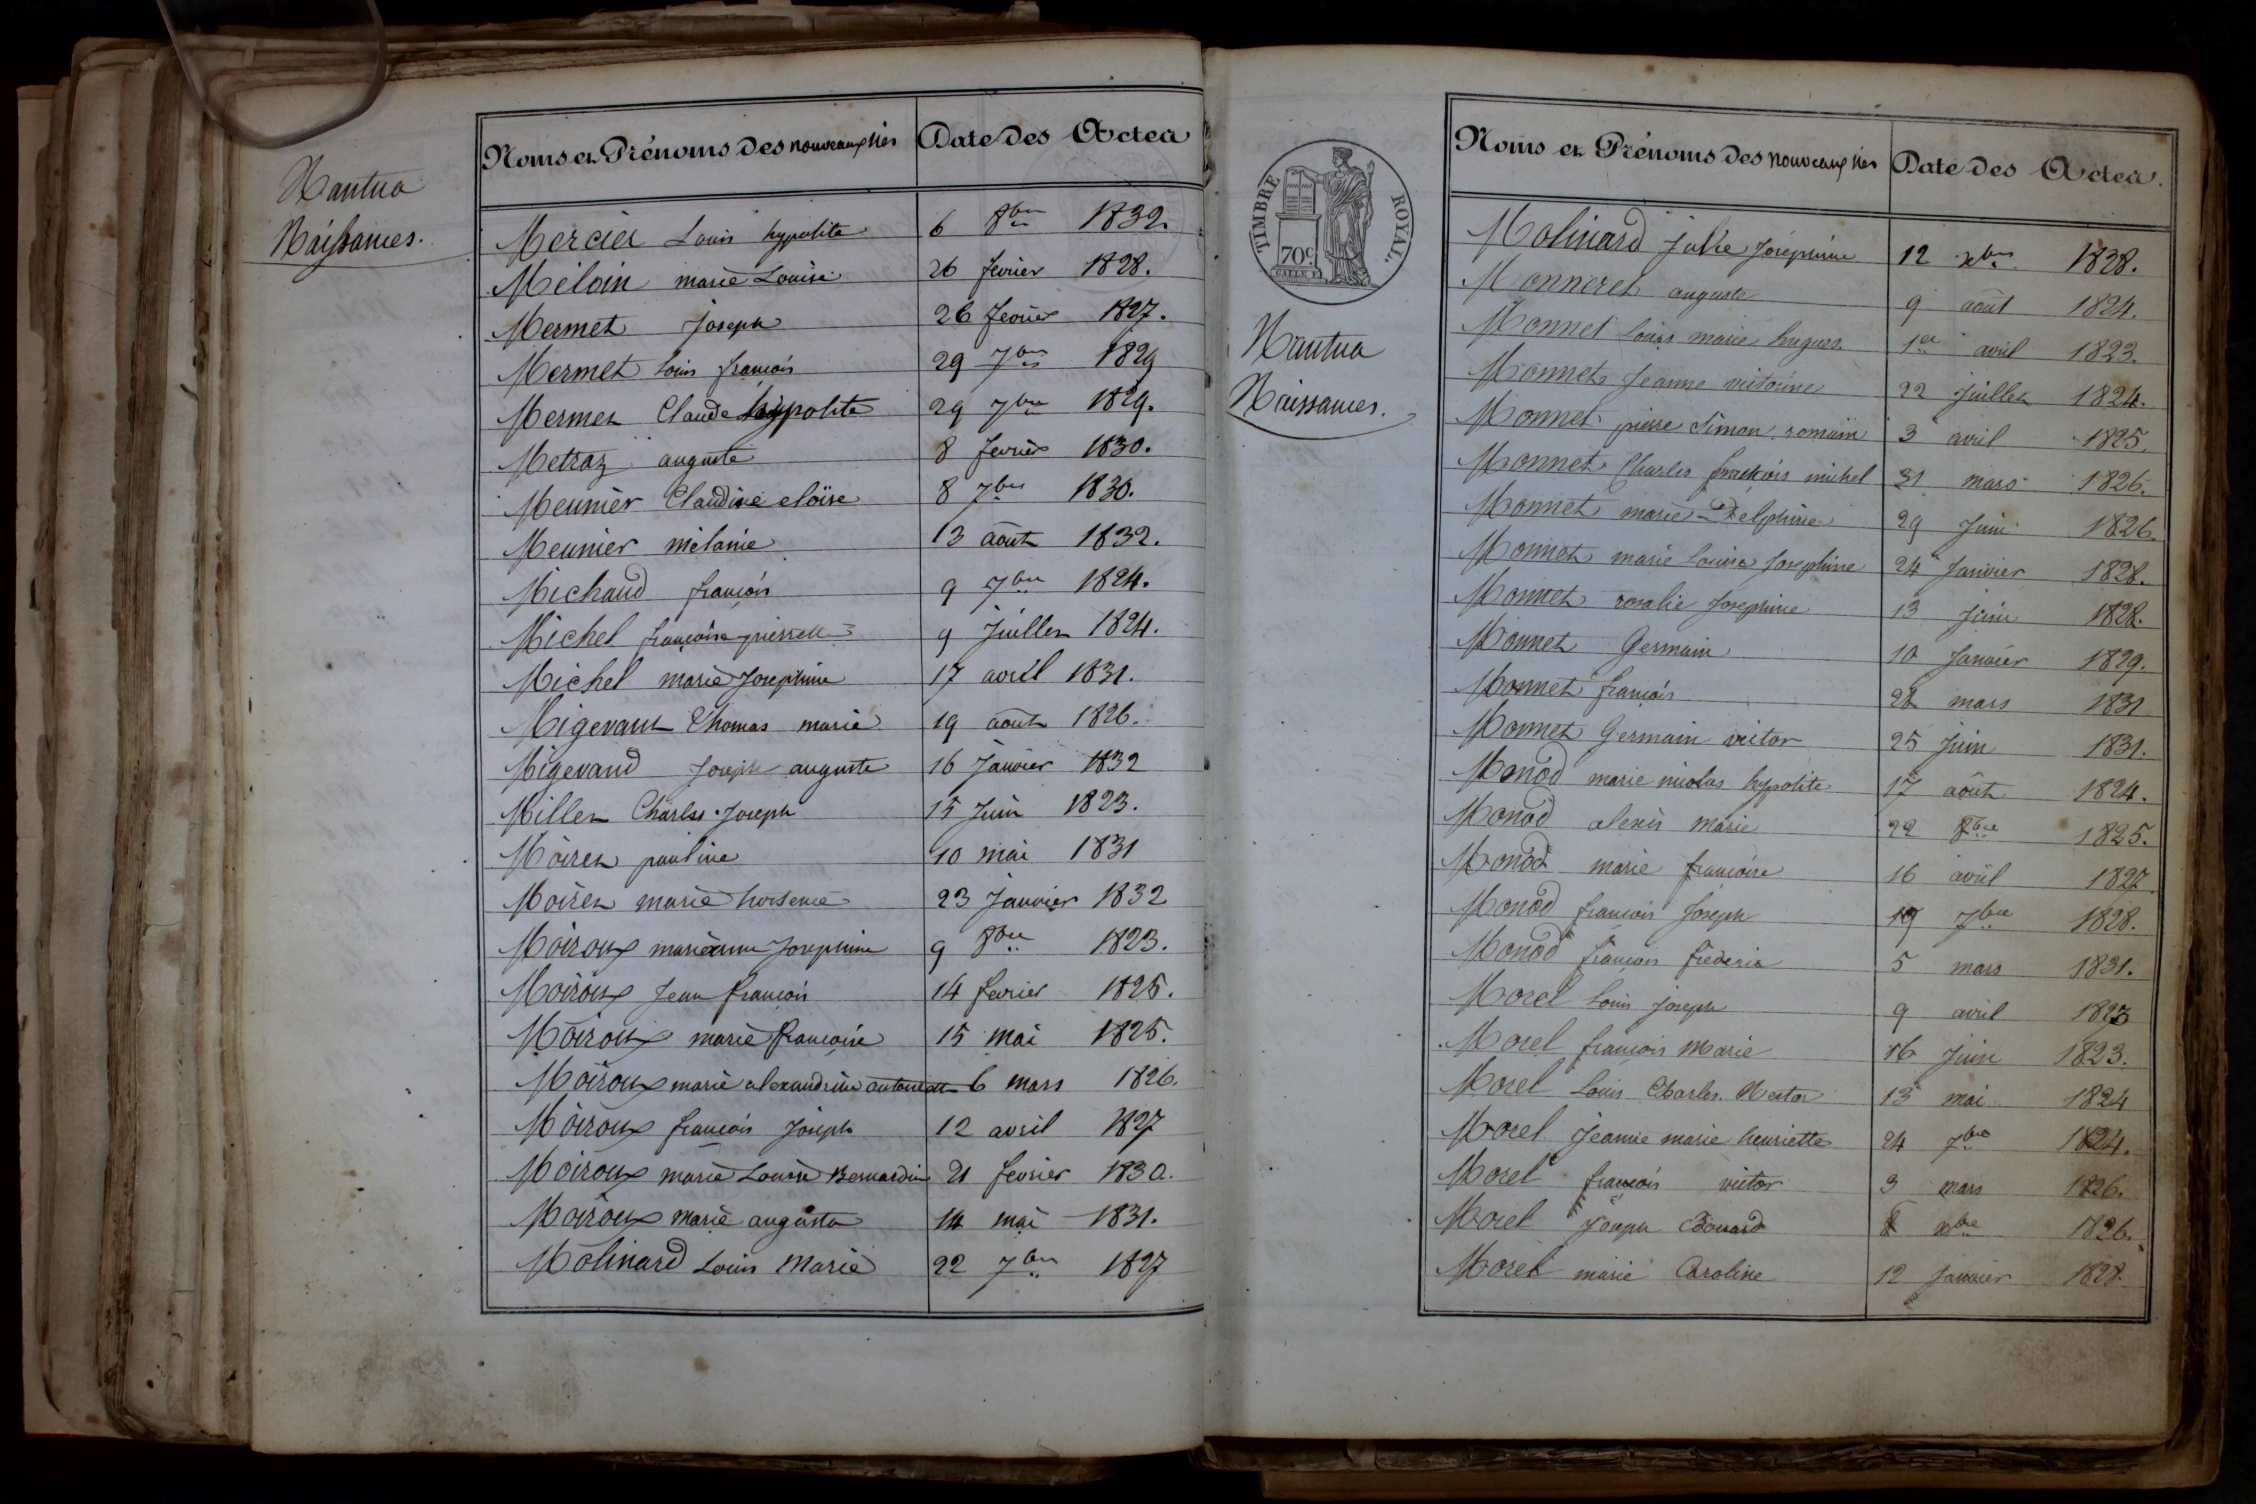 Nantua
Naissances.
Noms et Prénoms des nouveaux nés Date des Actes
Mercier Louis hypolite 6 8bre 1832.
Méloin marie Louise 26 fevrier 1828.
Mermet Joseph 26 fevrier 1827.
Mermet Louis françois 29 7bre 1829
Mermet Claude hypolite 29 7bre 1829.
Metraz auguste 8 fevrier 1830.
Meunier Claudine eloïse 8 7bre 1830.
Meunier mélanie 13 août 1832.
Michaud françois 9 7bre 1824.
Michel françoise pierrette 9 Juillet 1824.
Michel marie Josephine 17 avril 1831.
Migevant Thomas marie 19 août 1826.
Migevand Joseph auguste 16 Janvier 1832
Millet Charles Joseph 15 Juin 1823.
Moiret pauline 10 mai 1831
Moiret marie hortense 23 Janvier 1832
Moiroux marieanne Josephine 9 8bre 1823.
Moiroux Jean françois 14 fevrier 1825.
Moiroux marie françoise 15 mai 1825.
Moiroux marie alexandrine antoinette 6 mars 1826.
Moiroux françois Joseph 12 avril 1827
Moiroux marie Louise Bernardine 21 fevrier 1830.
Moiroux marie augusta 14 mai 1831.
Molinard Louis Marie 22 7bre 1827
TIMBRE ROYAL.
70c.
Nantua
Naissances.
Noms et Prénoms des nouveaux nés Date des Actes.
Molinard Julie Joséphine 12 xbre 1828.
Monneret auguste 9 août 1824.
Monnet Louis marie hugues 1er avril 1823.
Monnet Jeanne victorine 22 Juillet 1824.
Monnet pierre Simon romain 3 avril 1825.
Monnet Charles françois michel 31 mars 1826.
Monnet marie Delphine 29 Juin 1826.
Monnet marie Louise Josephine 24 Janvier 1828.
Monnet rosalie Josephine 13 Juin 1828.
Monnet Germain 10 Janvier 1829.
Monnet françois 28 mars 1831
Monnet Germain victor 25 Juin 1831.
Monod marie nicolas hypolite 17 août 1824.
Monod alexis Marie 22 8bre 1825.
Monod marie françoise 16 avril 1827.
Monod françois Joseph 19 7bre 1828.
Monod françois fréderic 5 mars 1831.
Morel Louis Joseph 9 avril 1823
Morel françois Marie 16 Juin 1823.
Morel Louis Charles Nestor 13 mai 1824
Morel Jeanne marie henriette 24 7bre 1824.
Morel françois victor 3 mars 1826.
Morel Joseph Edouard 8 xbre 1826.
Morel marie Caroline 12 Janvier 1828.